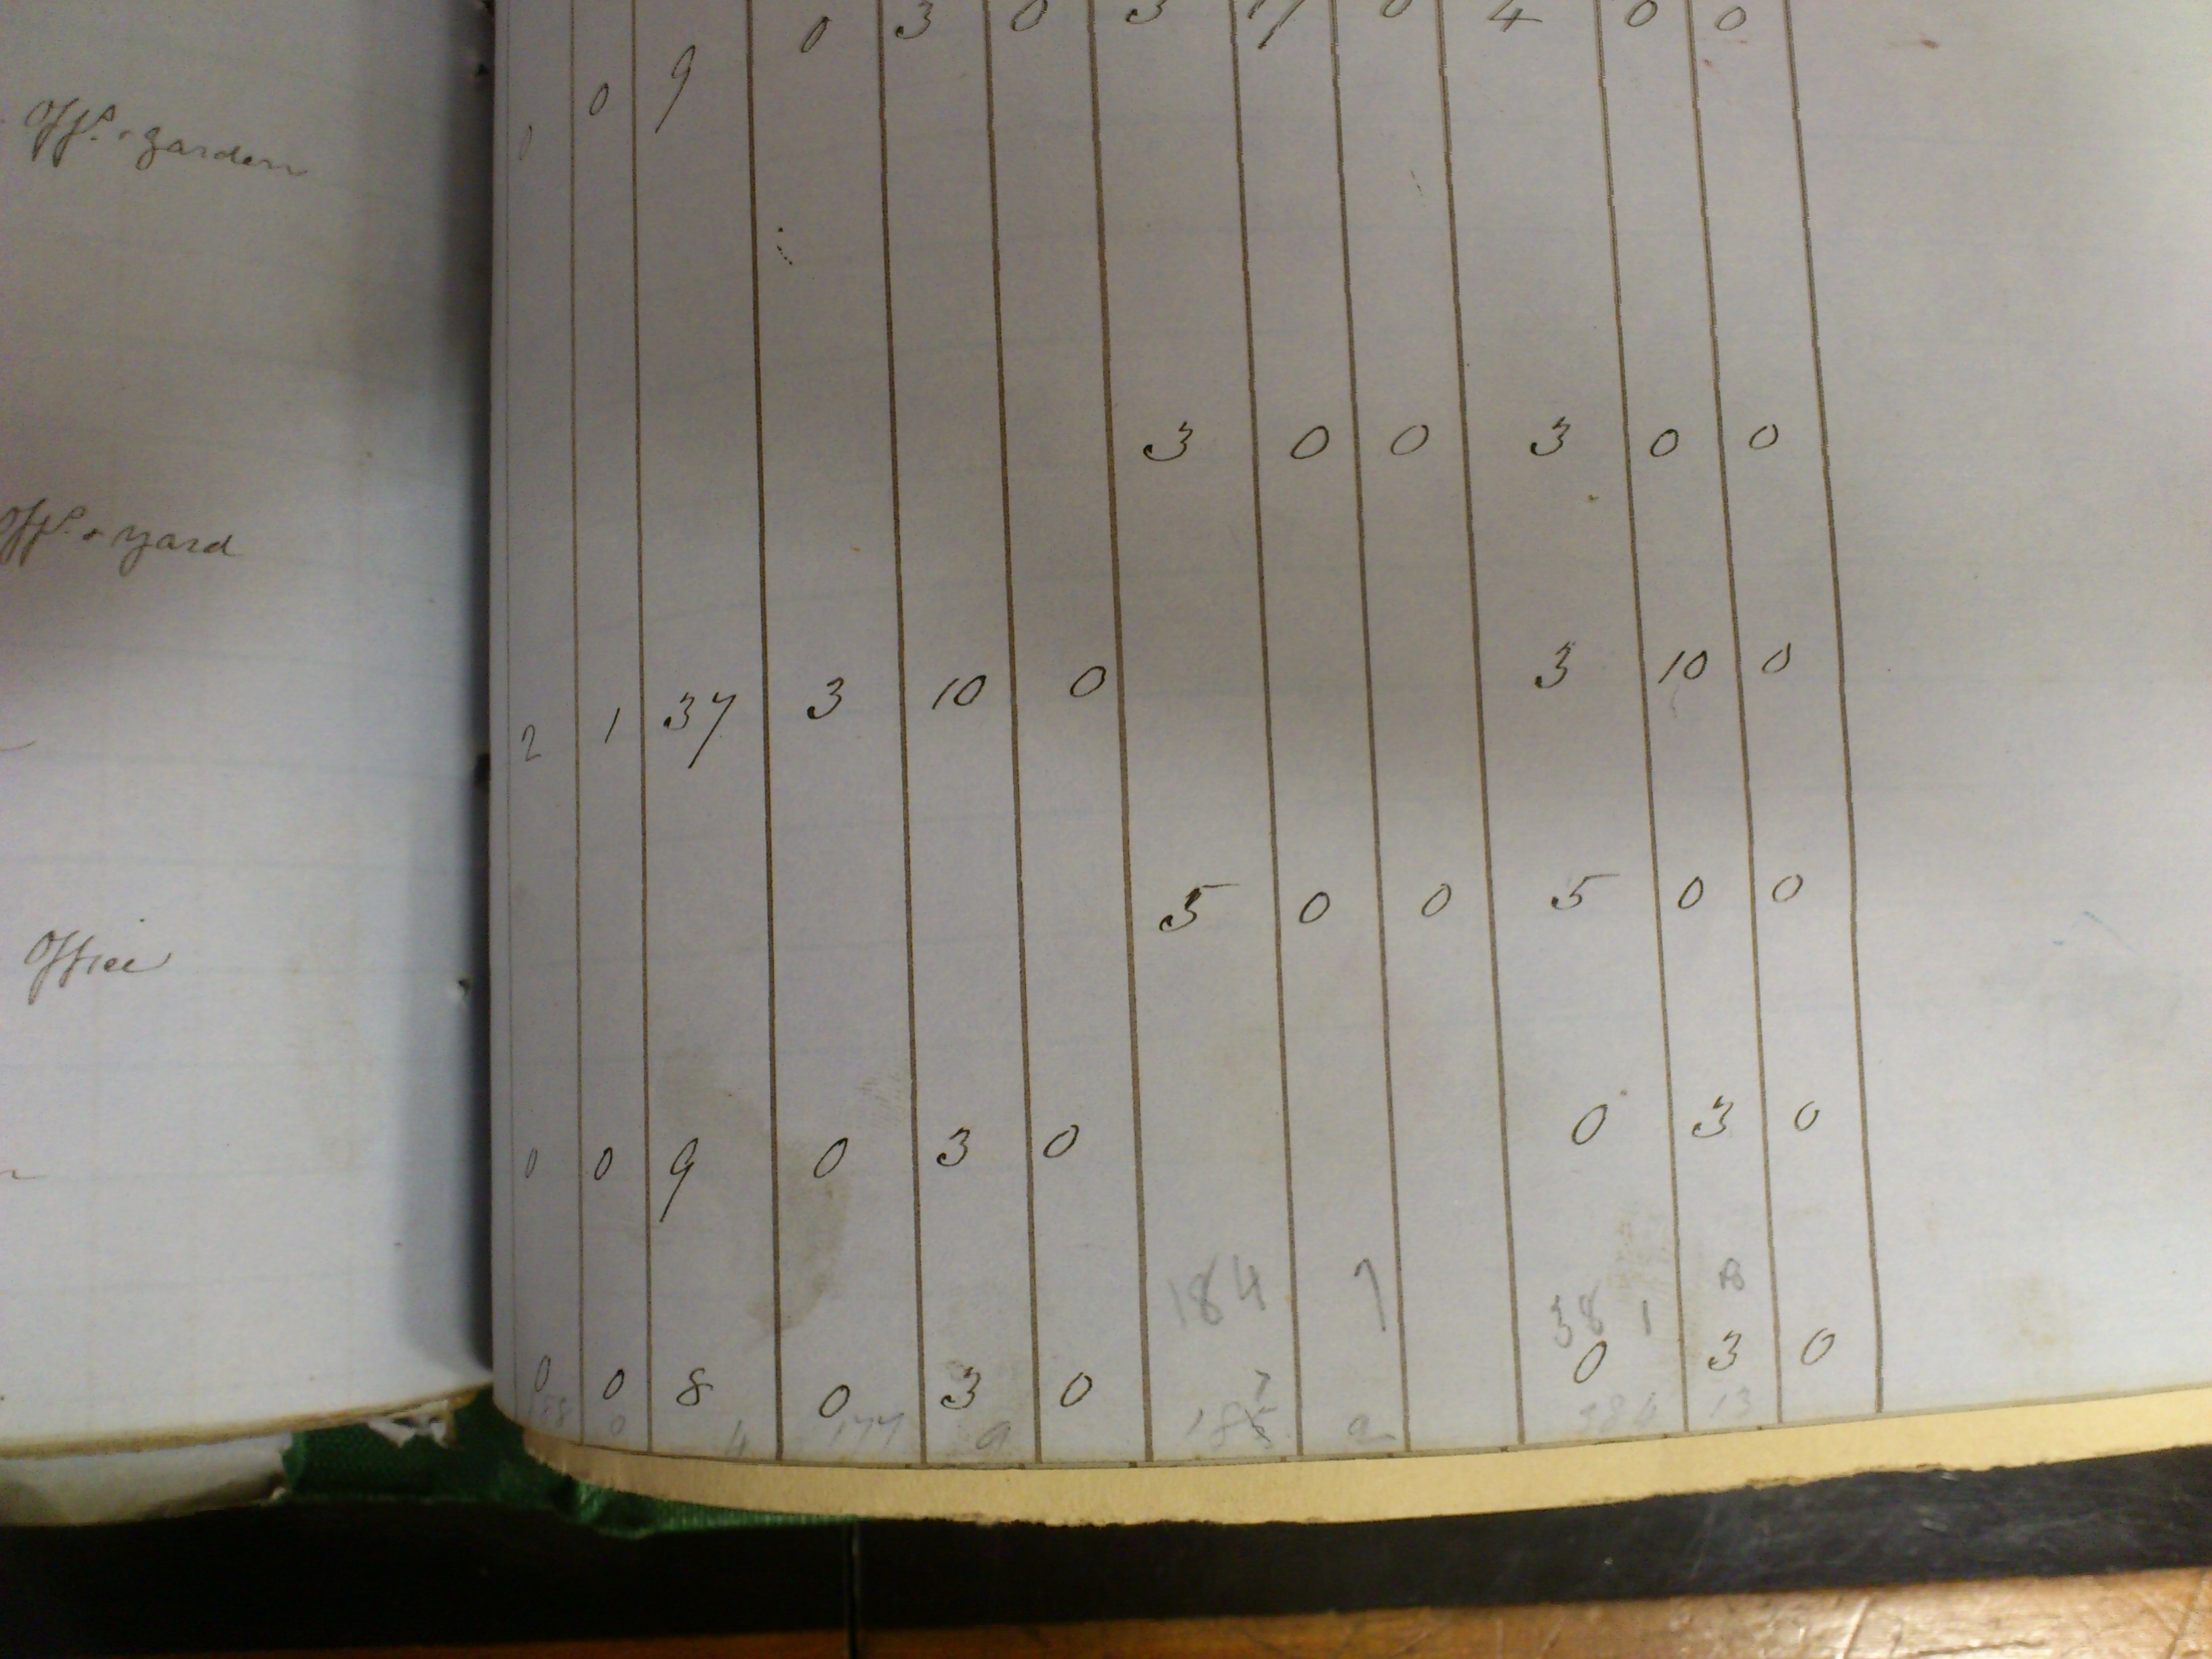 0 0 9 0 3 0 3 17 0 4 0 0
Offs. & garden
3 0 0 3 0 0
Offs. & yard
2 1 37 3 10 0 3 10 0
5 0 0 5 0 0
Office
0 0 9 0 3 0 0 3 0
184 7 381 13
0 0 8 0 3 0 0 3 0
188 0 4 177 9 384 13